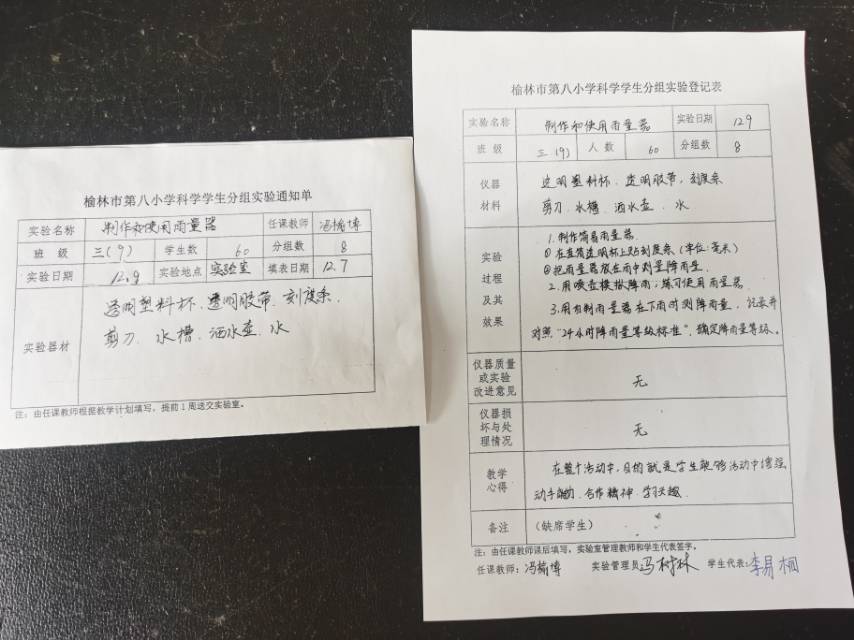 榆林市第八小学科学学生分组实验通知单
实验名称 制作和使用雨量器 任课教师 冯榆博
班 级 三(9) 学生数 60 分组数 8
实验日期 12.9 实验地点 实验室 填表日期 12.7
实验器材
透明塑料杯、透明胶带、刻度条、
剪刀、水槽、洒水壶、水
注：由任课教师根据教学计划填写，提前1周送交实验室。
榆林市第八小学科学学生分组实验登记表
实验名称 制作和使用雨量器 实验日期 12.9
班 级 三(9) 人 数 60 分组数 8
仪器
材料
透明塑料杯、透明胶带、刻度条
剪刀、水槽、洒水壶、水
实验
过程
及其
效果
1.制作简易雨量器
①在直筒透明杯上贴刻度条(单位:毫米)
②把雨量器放在雨中测量降雨量.
2.用喷壶模拟降雨,练习使用雨量器
3.用自制雨量器在下雨时测降雨量,记录并
对照"24小时降雨量等级标准",确定降雨量等级.
仪器质量
或实验
改进意见
无
仪器损
坏与处
理情况
无
教学
心得
在整个活动中,目的就是学生能够活动中增强
动手能力、合作精神、学习兴趣.
备注 (缺席学生)
注：由任课教师课后填写，实验室管理教师和学生代表签字。
任课教师: 冯榆博 实验管理员: 冯树林 学生代表: 李易桐